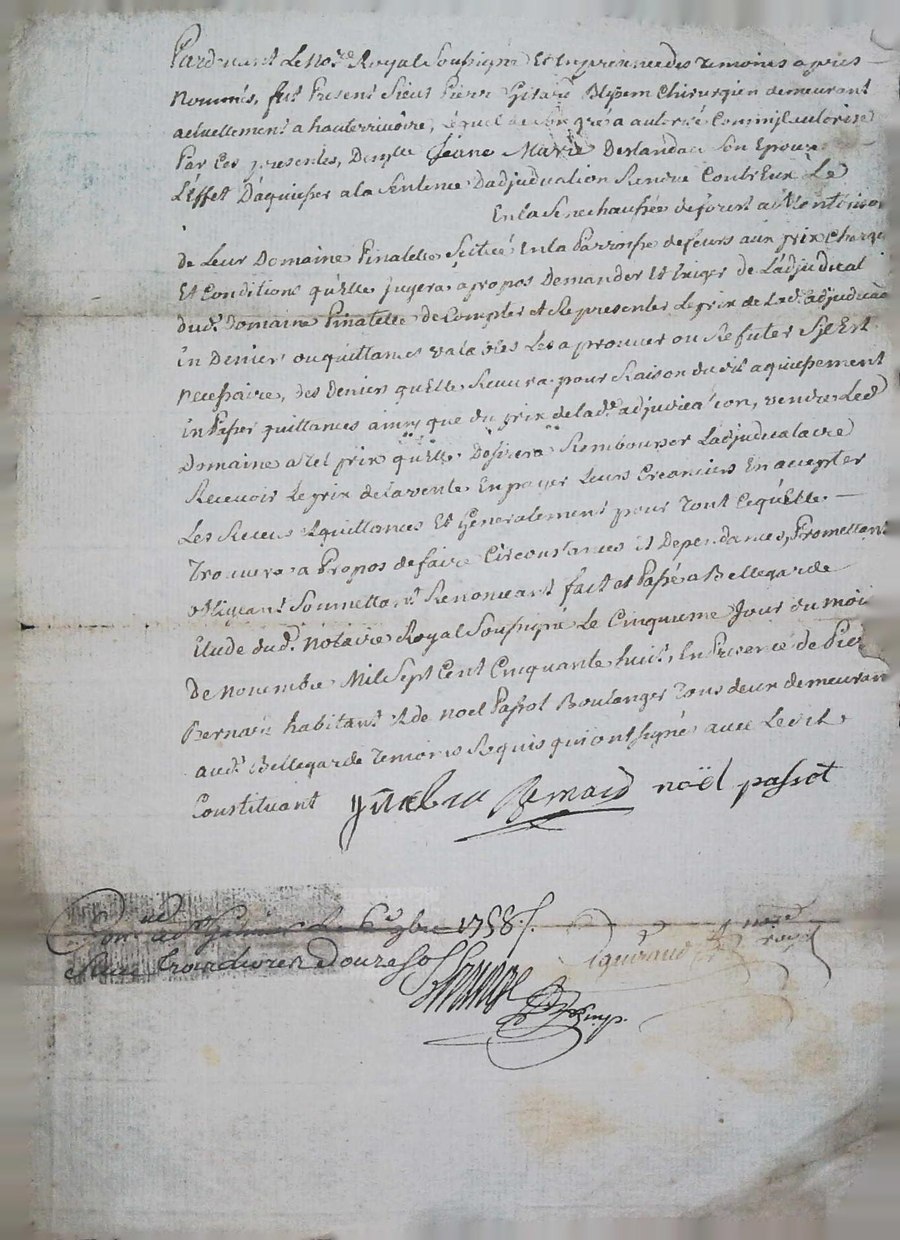 Pardevant Le No.re Royal Soussigné Et En presence des temoins apres
Nommés, fut Present Sieur Pierre Girard Chirurgien demeurant
actuellement a hauterivoire, Lequel de Son gré a autorisé Comm'il autorise
Par Ces presentes, Dem.lle Jeane Marie Deslandes Son Epouse
L'effet D'aquiesser a la Sentence D'adjudication Rendue Contr'eux Le
En la Senechaussée de forest a Montbrison
de Leur Domaine Pinatelle Scitué En la Parroisse de feurs aux prix Charges
Et Conditions qu'Elle jugera apropos Demander Et Exiger de L'adjudicat
dud.t Domaine Pinatelle de Compter et Representer Le prix de Lad.e adjudica
in Deniers ou quittances valables Les aprouver ou Refuter S'il Est
necessaire, des Deniers qu'Elle Recevra pour Raison dudit aquiessement
in Passer quittances ainsy que du prix de lad.e adjudica'ion, vendre Led
Domaine a tel prix qu'Elle Desirera Rembourser L'adjudicataire
Recevoir Le prix de la vente En payer Leurs Creanciers En accepter
Les Receus & quittances Et Generalement pour Tout Ce qu'Elle
Trouvera a Propos de faire Circonstances et Dependances, Promettant
obligeant Soumettant Renonceant fait et Passé a Bellegarde
Etude dud.t Notaire Royal Soussigné Le Cinquieme Jour du mois
De novembre Mil Sept Cent Cinquante huit, En Presence de Pier
Bernard habitant & de Noel Passot Boulanger Tous deux demeurant
aud.t Bellegarde Temoins Requis qui ont signé avec Ledit
Constituant Bernard noël passot
Le 6.e 9bre 1758
Reçu douze Sol